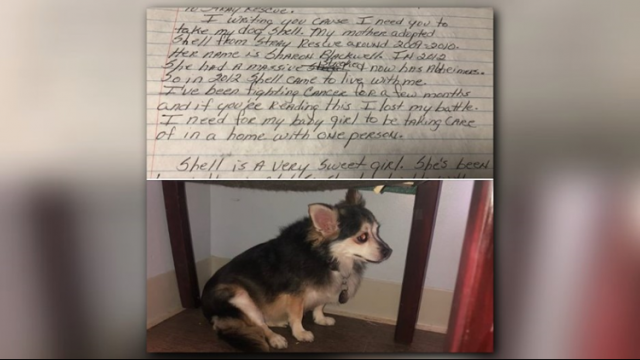 To Stray Rescue.
I writing you cause I need you to
take my dog Shell. My mother adopted
Shell from Stray Rescue around 2009-2010.
Her name is Sharon Blackwell. In 2012
She had a massive stroke, now has Alzheimers.
So in 2012 Shell came to live with me.
I've been fighting cancer for a few months
and if you're reading this I lost my battle.
I need for my baby girl to be taking care
of in a home with one person.
Shell is a very sweet girl. She's been